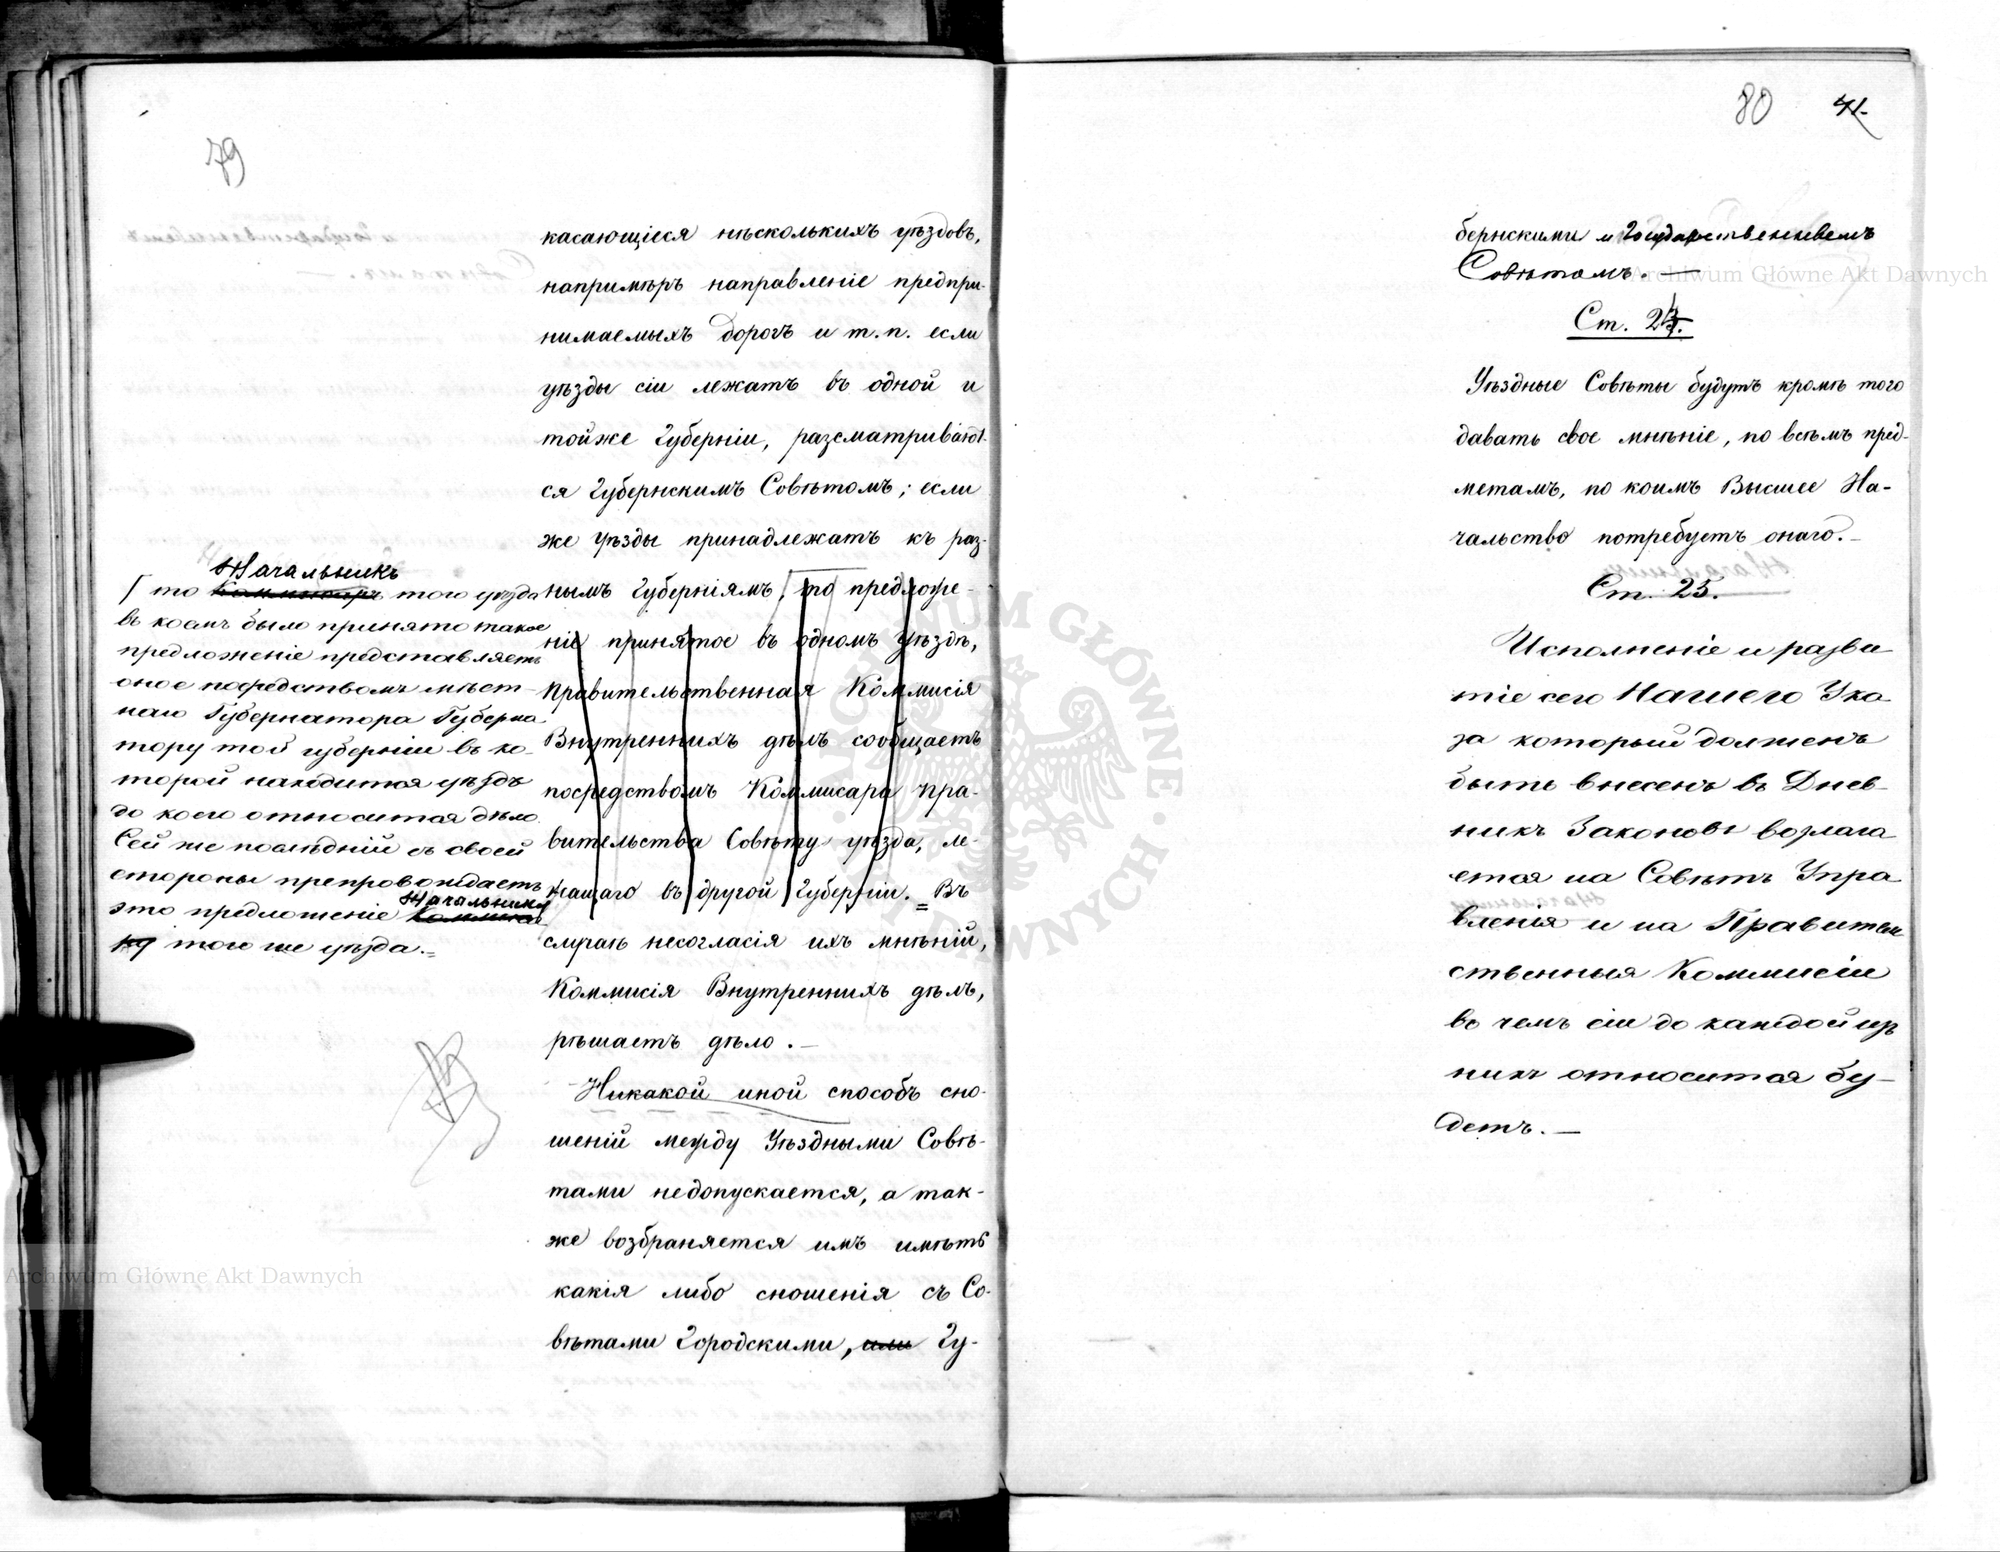 79
касающіеся нѣсколькихъ уѣздовъ,
напримѣръ направленіе предпри-
нимаемыхъ дорогъ и т.п. если
уѣзды сіи лежатъ въ одной и
тойже Губерніи, разсматривают-
ся Губернскимъ Совѣтомъ; если
же уѣзды принадлежатъ къ раз-
нымъ Губерніямъ, то предложе-
ніе принятое въ одномъ уѣздѣ,
Правительственная Коммисія
Внутреннихъ дѣлъ сообщаетъ
посредствомъ Коммисара Пра-
вительства Совѣту уѣзда, ле-
жащаго въ другой Губерніи. = Въ
случаѣ несогласія ихъ мнѣній,
Коммисія Внутреннихъ дѣлъ,
рѣшаетъ дѣло. —
Никакой иной способъ сно-
шеній между Уѣздными Совѣ-
тами недопускается, а так-
же возбраняется имъ имѣть
какія либо сношенія съ Со-
вѣтами Городскими, или Гу-
Начальникъ
то Коммисаръ того уѣзда
въ коемъ было принято такое
предложеніе представляетъ
оное посредствомъ мѣст-
наго Губернатора Губерна-
тору той губерніи въ ко-
торой находится уѣздъ
до коего относится дѣло.
Сей же послѣдній съ своей
стороны препровождаетъ
Начальнику
это предложеніе Коммиса-
ру того же уѣзда. =
80 41.
бернскими и Государственнымъ
Совѣтомъ. —
Ст. 24.
Уѣздные Совѣты будутъ кромѣ того
давать свое мнѣніе, по всѣмъ пред-
метамъ, по коимъ Высшее На-
чальство потребуетъ онаго. —
Ст. 25.
Исполненіе и разви
тіе сего Нашего Ука
за который долженъ
быть внесенъ въ Днев-
никъ Законовъ возлага
ется на Совѣтъ Упра
вленія и на Правитель
ственныя Коммисіи
въ чемъ сіи до каждой изъ
нихъ относится бу-
детъ. —
Archiwum Główne Akt Dawnych
Archiwum Główne Akt Dawnych
ARCHIWUM GŁÓWNE AKT DAWNYCH